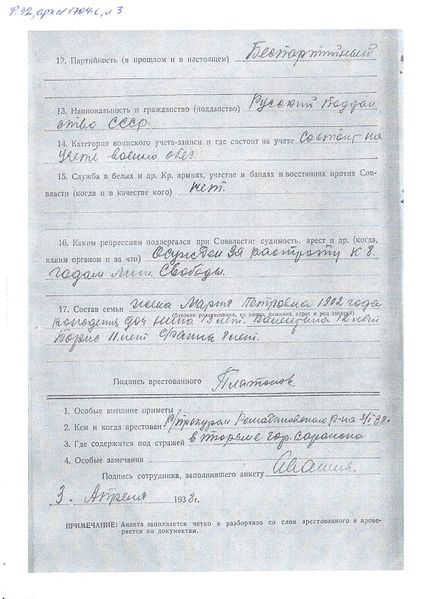 Ф.32, арх N 1704с, л 3
12. Партийность (в прошлом и в настоящем) Беспартийный
13. Национальность и гражданство (подданство) Русский Поддан
ство СССР.
14. Категория воинского учета-запаса и где состоит на учете Состоит на
учете
15. Служба в белых и др. Кр. армиях, участие в бандах и восстаниях против Сов-
власти (когда и в качестве кого) нет
16. Каким репрессиям подвергался при Совпласти: судимость, арест и др. (когда,
каким органом и за что) Осужден за растрату к 8
годам лиш. Свободы.
17. Состав семьи жена Мария Петровна 1902 года
(близкие родственники, их имена, фамилия, адрес и род занятий)
рождения доч Нина 15 лет. Валентина 12 лет
Борис лет Фаина лет.
Подпись арестованного Платонов
1. Особые внешние приметы
2. Кем и когда арестован Прокурором р-на
3. Где содержится под стражей в тюрьме гор. Саранска
4. Особые замечания
Подпись сотрудника, заполнившего анкету
3. Апреля 1938 г.
ПРИМЕЧАНИЕ: Анкета заполняется четко и разборчиво со слов арестованного и прове-
ряется по документам.